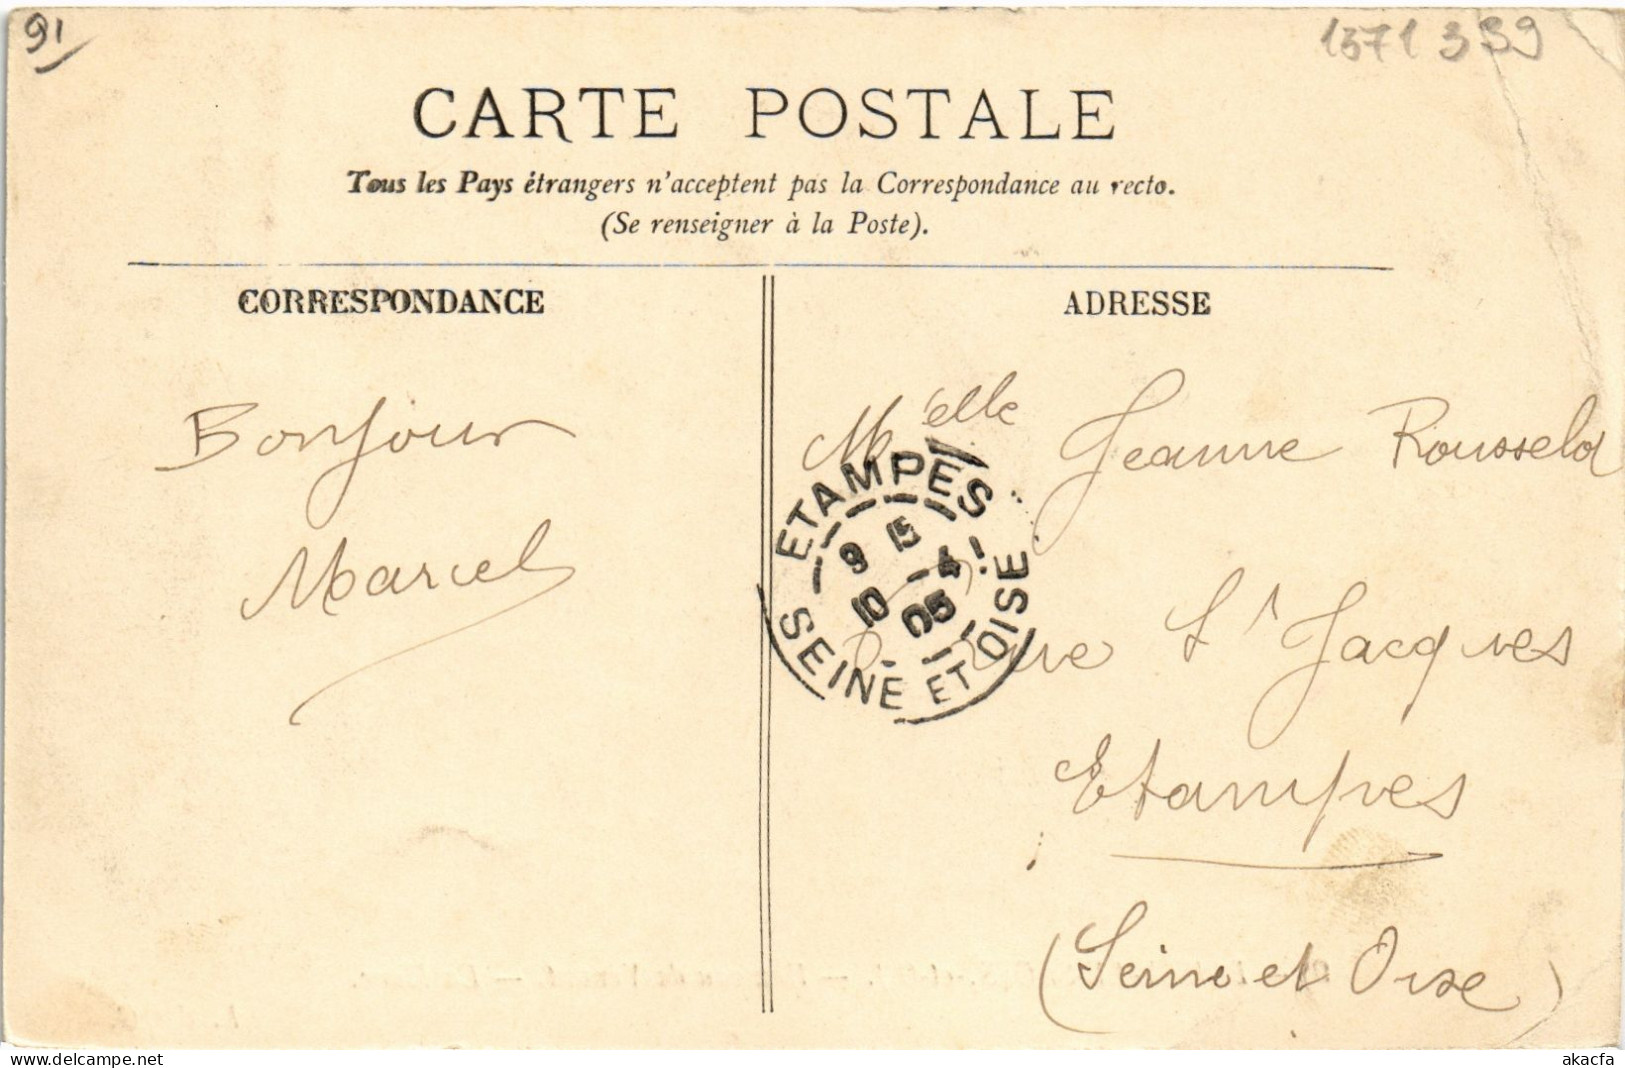 91
1371339
CARTE POSTALE
Tous les Pays étrangers n'acceptent pas la Correspondance au recto.
(Se renseigner à la Poste).
CORRESPONDANCE
ADRESSE
Bonjour
Marcel
M'elle Jeanne Rousselot
rue St Jacques
Etampes
(Seine et Oise)
ETAMPES
9 15
10 -4
05
SEINE ET OISE
delcampe.net
akacfa